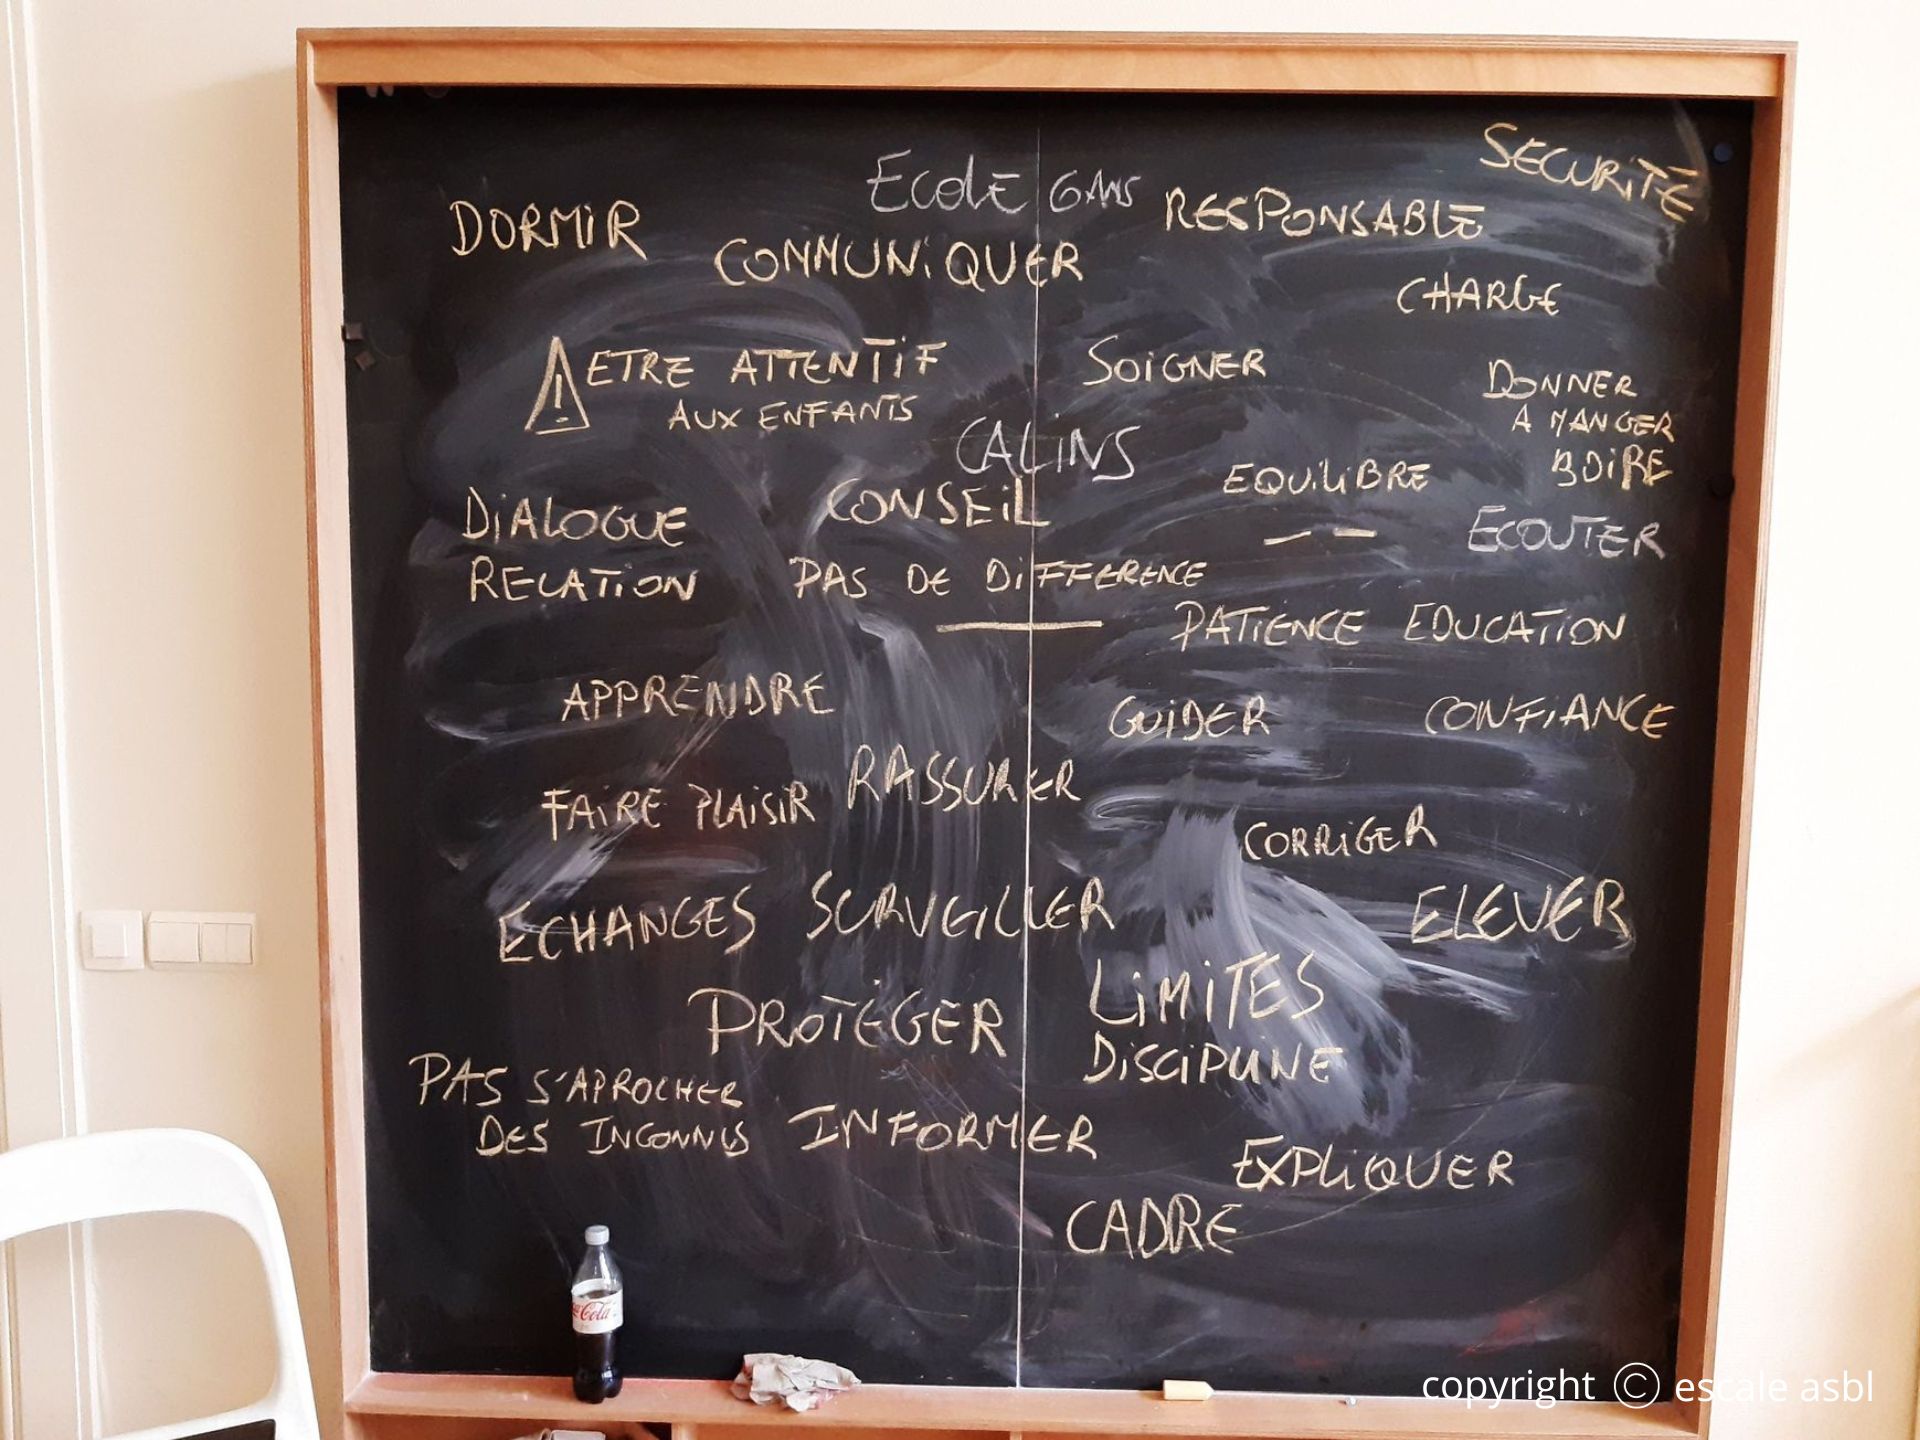 SECURITÉ
ECOLE 6 ANS
DORMIR
RESPONSABLE
COMMUNIQUER
CHARGE
ETRE ATTENTIF
AUX ENFANTS
SOIGNER
DONNER
A MANGER
BOIRE
CALINS
EQUILIBRE
DIALOGUE
CONSEIL
ECOUTER
RELATION
PAS DE DIFFERENCE
PATIENCE EDUCATION
APPRENDRE
GUIDER
CONFIANCE
FAIRE PLAISIR
RASSURER
CORRIGER
ECHANGES
SURVEILLER
ELEVER
LIMITES
PROTÉGER
DISCIPLINE
PAS S'APROCHER
DES INCONNUS
INFORMER
EXPLIQUER
CADRE
Cola
copyright © escale asbl